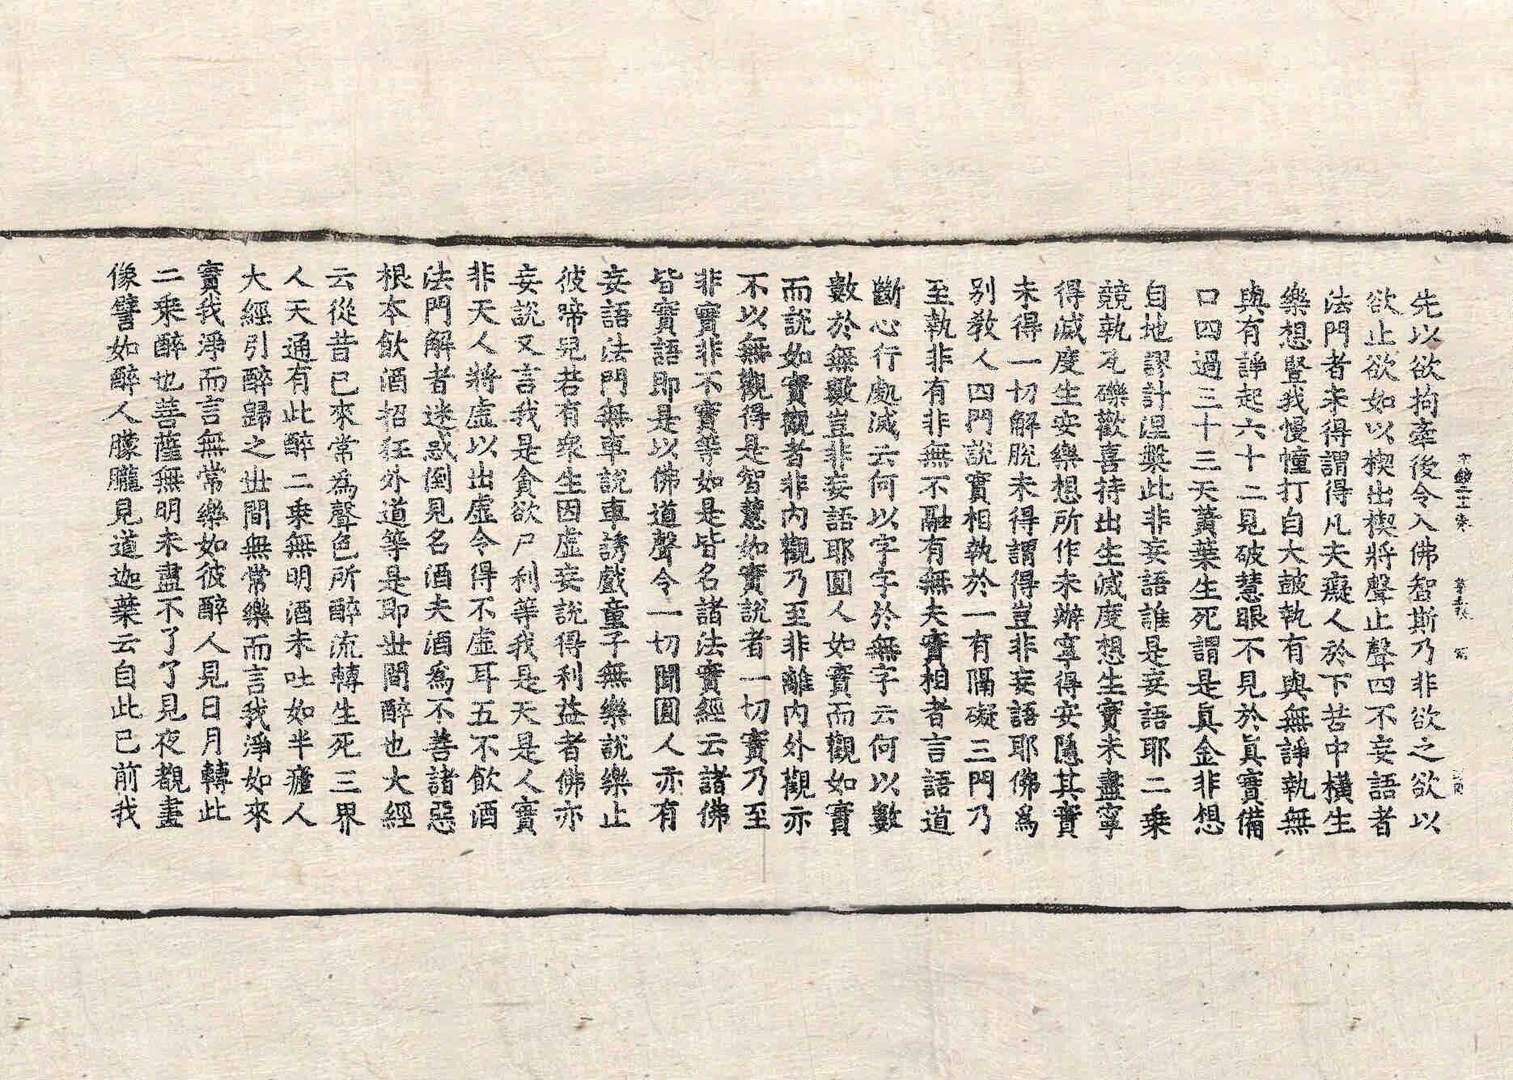 先以欲拘牽後令入佛智斯乃非欲之欲以
欲止欲如以楔出楔將聲止聲四不妄語者
法門者未得謂得凡夫癡人於下苦中橫生
樂想豎我慢幢打自大皷執有與無諍執無
與有諍起六十二見破慧眼不見於眞實備
口四過三十三天黃葉生死謂是眞金非想
自地謬計涅槃此非妄語誰是妄語耶二乘
競執瓦礫歡喜持出生滅度想生實未盡寧
得滅度生安樂想所作未辦寧得安隱其實
未得一切解脫未得謂得豈非妄語耶佛爲
別教人四門說實相執於一有隔礙三門乃
至執非有非無不融有無夫實相者言語道
斷心行處滅云何以字字於無字云何以數
數於無數豈非妄語耶圓人如實而觀如實
而說如實觀者非內觀乃至非離內外觀亦
不以無觀得是智慧如實說者一切實乃至
非實非不實等如是皆名諸法實經云諸佛
皆實語即是以佛道聲令一切聞圓人亦有
妄語法門無車說車誘戲童子無樂說樂止
彼啼兒若有衆生因虛妄說得利益者佛亦
妄說又言我是貪欲尸利等我是天是人實
非天人將虛以出虛令得不虛耳五不飲酒
法門解者迷惑倒見名酒夫酒爲不善諸惡
根本飲酒招狂外道等是即世間醉也大經
云從昔已來常爲聲色所醉流轉生死三界
人天通有此醉二乘無明酒未吐如半瘧人
大經引醉歸之世間無常樂而言我淨如來
實我淨而言無常樂如彼醉人見日月轉此
二乘醉也菩薩無明未盡不了了見夜覩畫
像譬如醉人朦朧見道迦葉云自此已前我